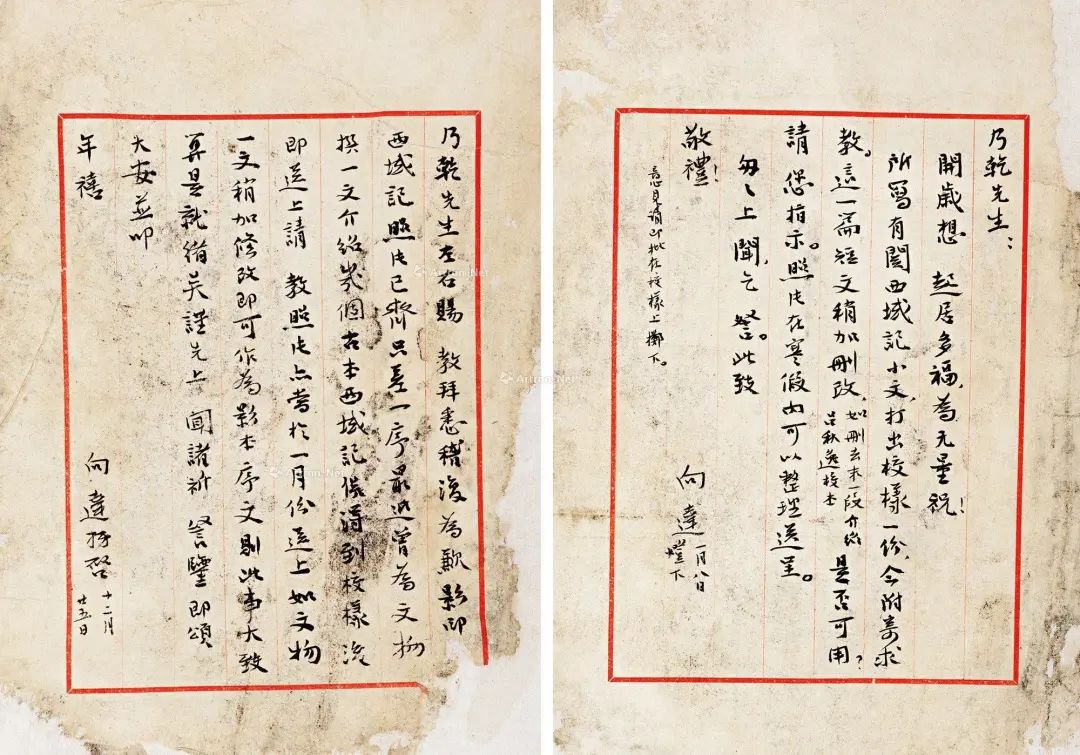 乃乾先生左右賜 教拜悉稽復為歉影印
西域記照片已齊只差一序最近曾為文物
撰一文介紹幾個古本西域記俟得到校樣後
即送上請 教照片亦当於一月份送上如文物
一文稍加修改即可作為影本序文則此事大致
算是就緒矣謹先上 聞諸祈 詧鑒即頌
大安並叩
年禧
向達拜啓 十二月
廿五日
乃乾先生：
開歲想 起居多福，為无量祝！
所寫有關西域記小文，打出校樣一份，今附寄求
教。這一篇短文稍加刪改，如刪去末一段介紹
呂秋逸校本 是否可用？
請 您指示。照片在寒假內可以整理送呈。
匆匆上 聞，乞 詧。此致
敬禮！
向達 一月八日
燈下
意見請即批在校樣上擲下。
Artron.Net
Artron.Net
Artron.Net
Artron.Net